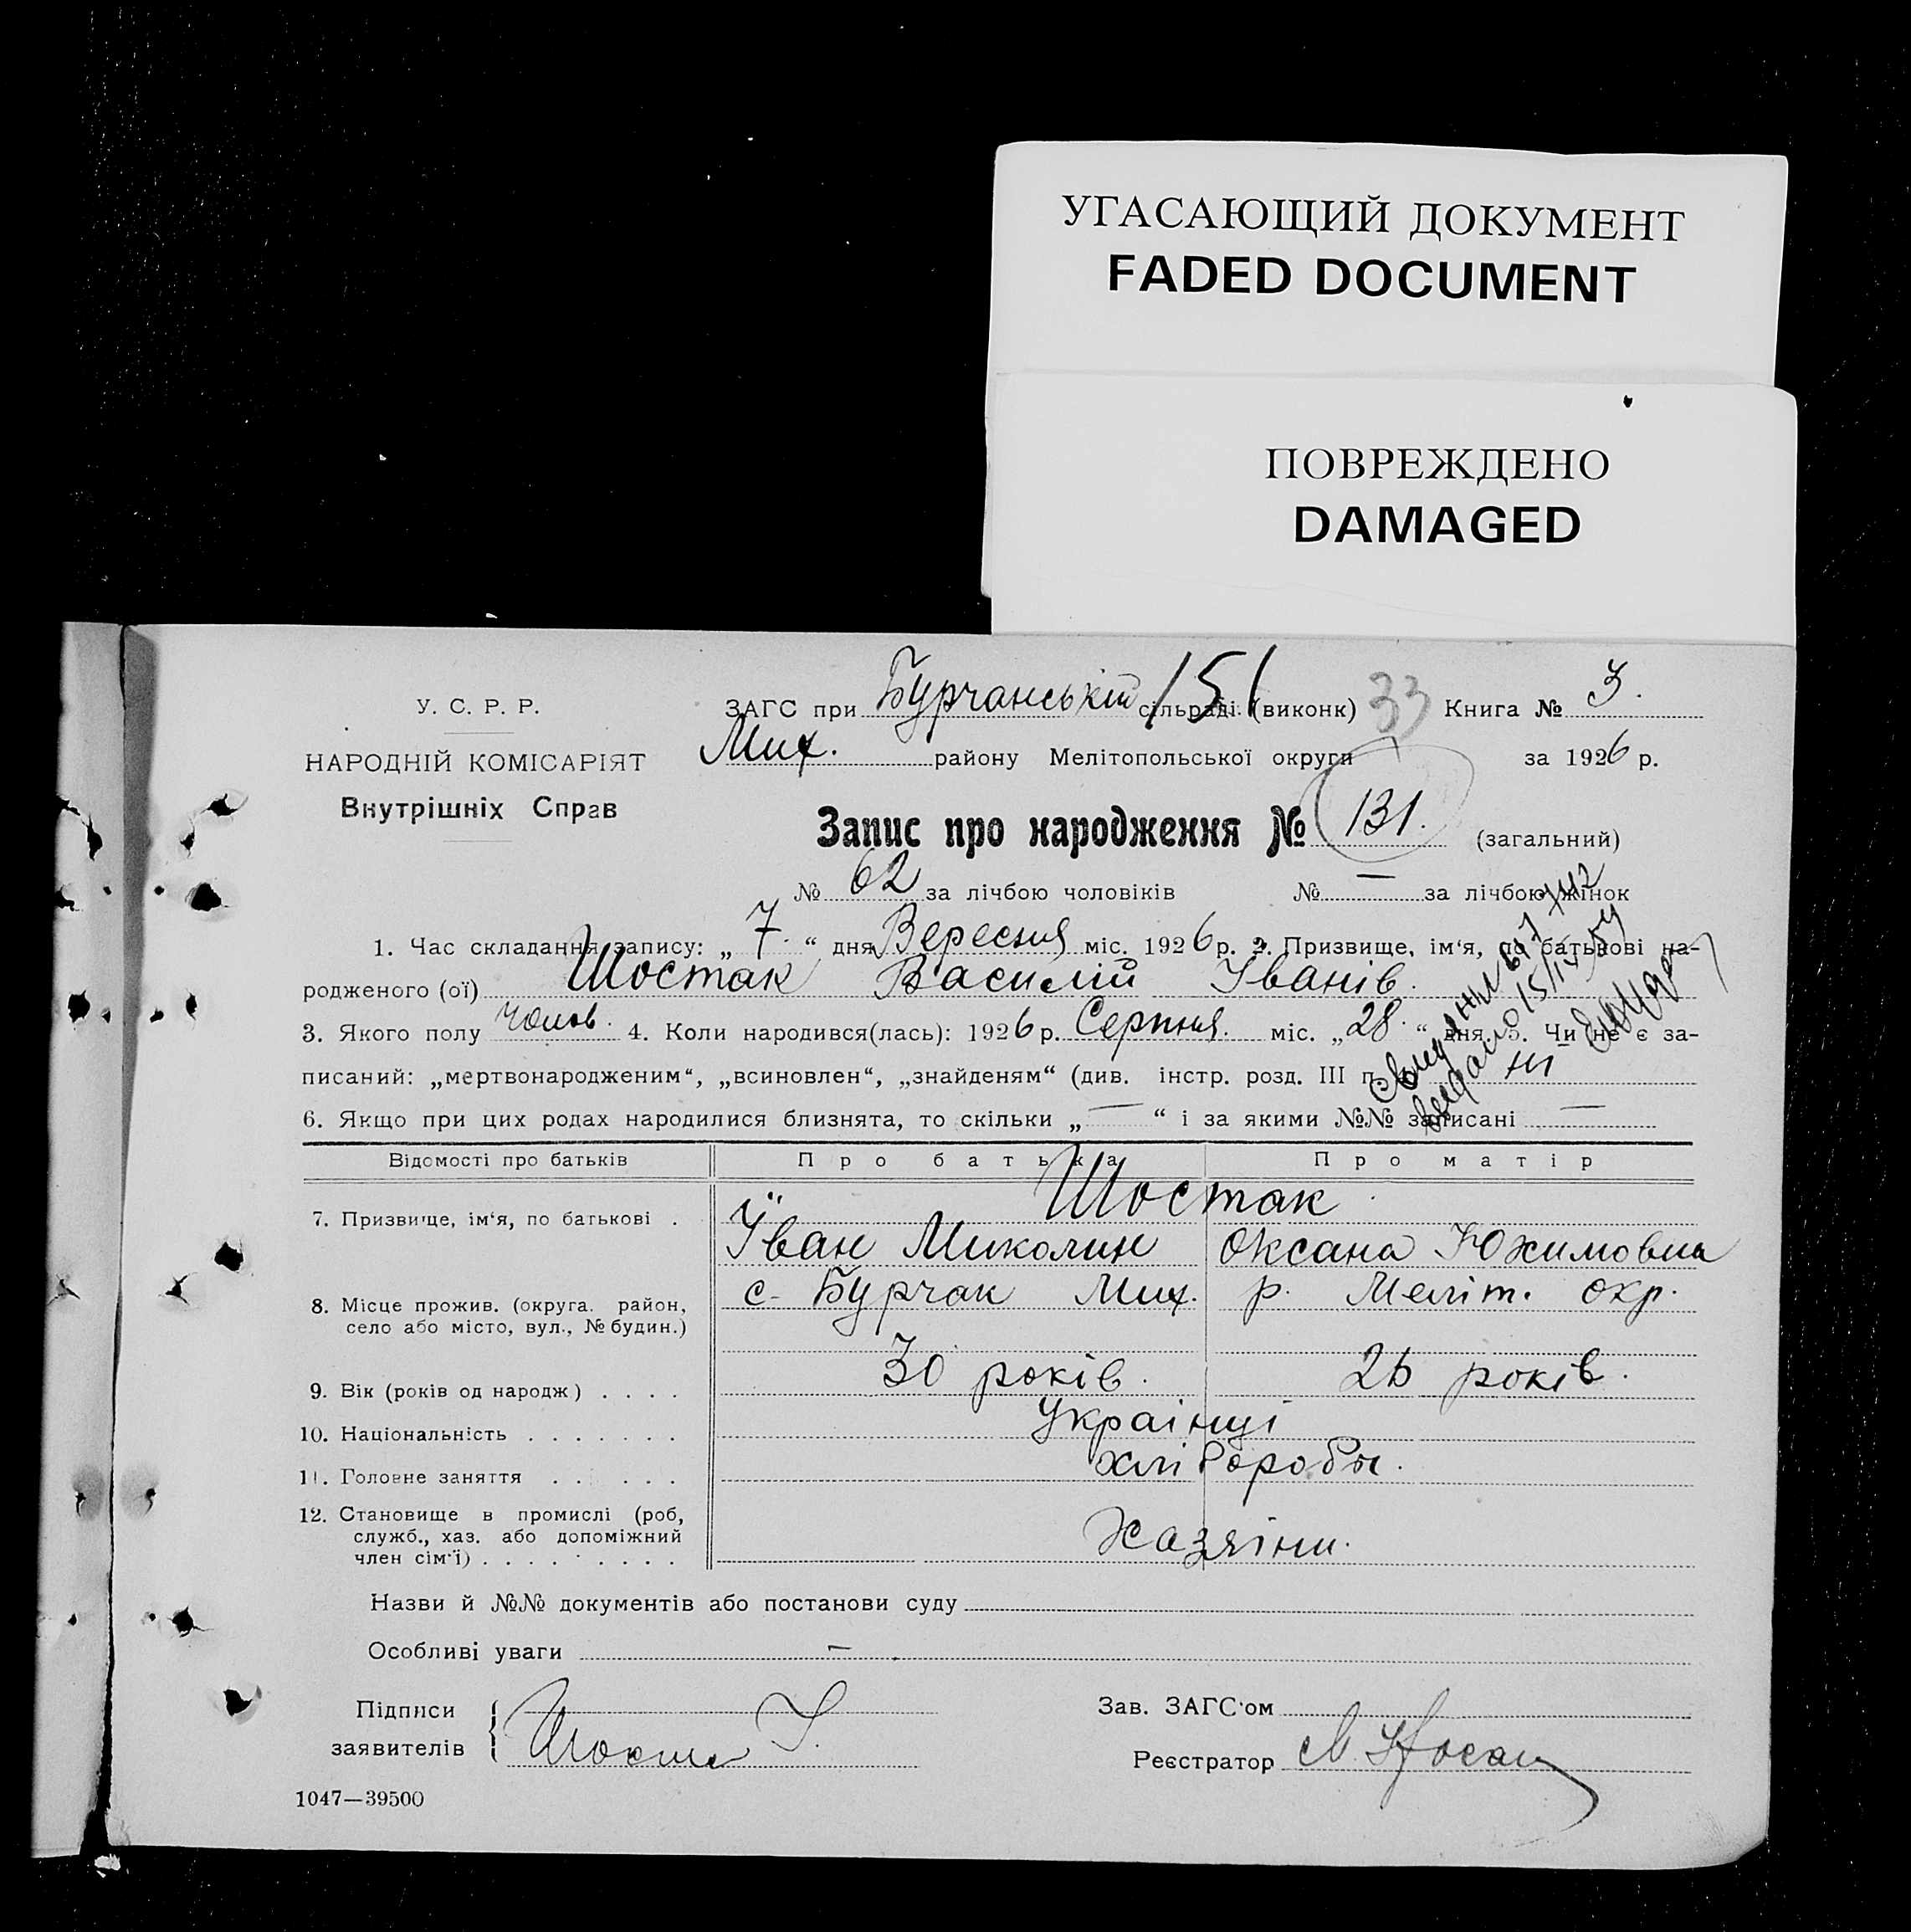 УГАСАЮЩИЙ ДОКУМЕНТ
FADED DOCUMENT
ПОВРЕЖДЕНО
DAMAGED
У. С. Р. Р.
НАРОДНІЙ КОМІСАРІЯТ
Внутрішніх Справ
ЗАГС при Бурчанській сільраді (виконк) 33 Книга № 3.
151
Мих. району Мелітопольської округи за 1926 р.
Запис про народження № 131. (загальний)
№ 62 за лічбою чоловіків № — за лічбою жінок
1. Час складання запису: „ 7. “ дня Вересня міс. 1926 р. 2. Призвище, ім‘я, по батькові на-
родженого (ої) Шостак Василій Іванів.
3. Якого полу чолов. 4. Коли народився(лась): 1926 р. Серпня. міс. „28.“ дня 5. Чи не є за-
писаний: „мертвонародженим“, „всиновлен“, „знайденям“ (див. інстр. розд. III п. ні
6. Якщо при цих родах народилися близнята, то скільки „ — “ і за якими №№ записані —
Відомості про батьків Про батька Про матір
7. Призвище, ім‘я, по батькові . Шостак
Іван Миколин Оксана Юхимовна
8. Місце прожив. (округа, район, с. Бурчак Мих. р. Меліт. окр.
село або місто, вул., № будин.)
9. Вік (років од народж) . . . . 30 років. 26 років.
10. Національність . . . . . . . Українці
11. Головне заняття . . . . . . хлібороби.
12. Становище в промислі (роб,
служб., хаз. або допоміжний Хазяіни.
член сім‘ї) . . . . . . . . .
Назви й №№ документів або постанови суду
Особливі уваги —
Підписи Зав. ЗАГС‘ом
заявителів Шоста І. Реєстратор
1047—39500